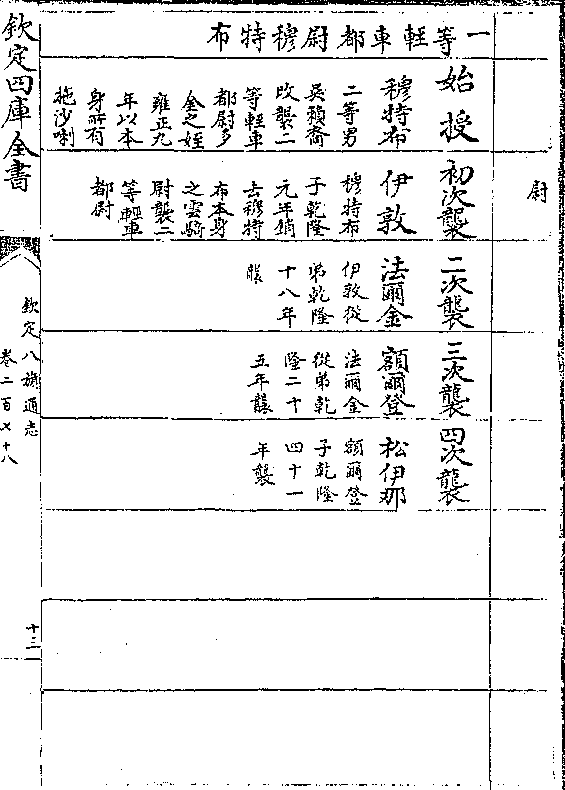 尉
一等輕車都尉穆特布
始授
穆特布
二等男
吳賴喬
改襲二
等輕車
都尉多
金之姪
雍正九
年以本
身所有
拖沙喇
初次襲
伊敦
穆特布
子乾隆
元年銷
去穆特
布本身
之雲騎
尉襲二
等輕車
都尉
二次襲
法爾金
伊敦從
弟乾隆
十八年
襲
三次襲
額爾登
法爾金
從弟乾
隆二十
五年襲
四次襲
松伊那
額爾登
子乾隆
四十一
年襲
欽定四庫全書
欽定八旗通志
卷二百七十八
十三